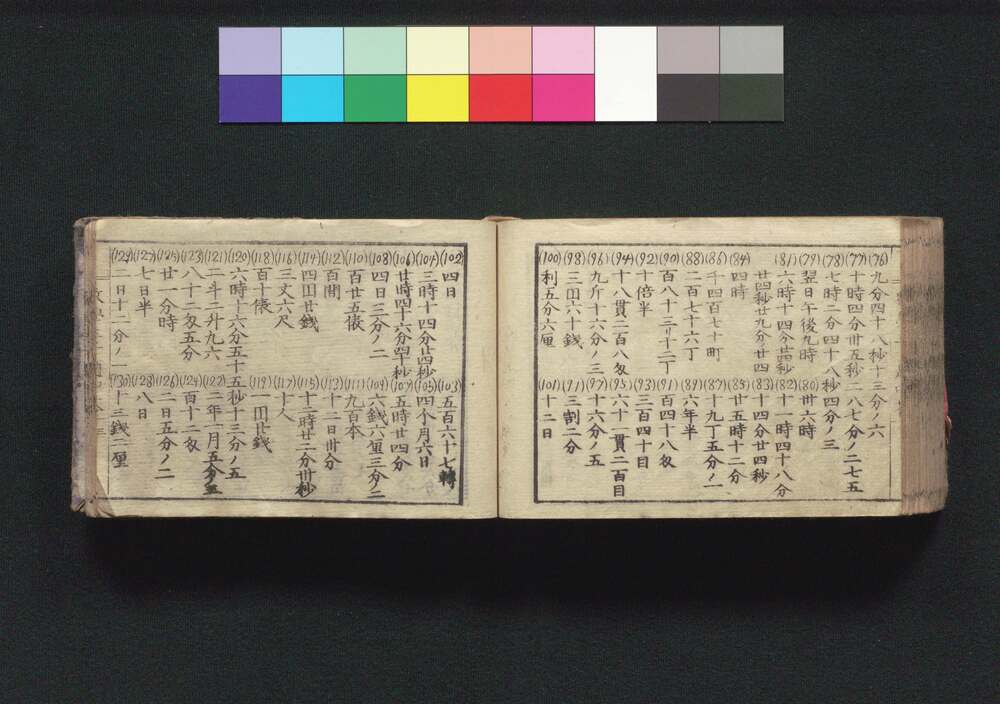 (76) 九分四十八秒十三分ノ六
(77) 十時四分卅五秒二八七分ノ二七五
(78) 七時二分四十八秒四分ノ三
(79) 翌日午後九時
(80) 卅六時
(81) 六時十四分廿四秒
(82) 十一時四十八分
廿四秒廿九分ノ廿四
(83) 十四分廿四秒
(84) 四時
(85) 廿五時十二分
(86) 千四百七十町
(87) 十九丁五分ノ一
(88) 二百七十六丁
(89) 六年半
(90) 百八十三リ十二丁
(91) 百四十八匁
(92) 十倍半
(93) 三百四十目
(94) 十八貫二百八匁
(95) 六十一貫二百目
(96) 九斤十六分ノ三
(97) 十六分ノ五
(98) 三円六十銭
(91) 三割二分
(100) 利五分六厘
(101) 十二日
(102) 四日
(103) 五百六十七轉
(104) 三時十四分廿四秒
(105) 四个月六日
(106) 廿時四十六分四十秒
(107) 五時廿四分
(108) 四日三分ノ二
(109) 六銭六厘三分ノ二
(110) 百廿五俵
(111) 九百本
(112) 百間
(113) 十二日卅分
(114) 四円廿銭
(115) 十二時廿二分卅秒
(116) 三丈六尺
(117) 十人
(118) 百十俵
(119) 一円廿銭
(120) 六時十六分五十五秒十三分ノ五
(121) 二斗二升九六
(122) 二年一月五分ノ三
(123) 八十二匁五分
(124) 百十二匁
(125) 廿一分時
(126) 二日五分ノ二
(127) 七日半
(128) 八日
(129) 二日十二分ノ一
(130) 十三銭二厘